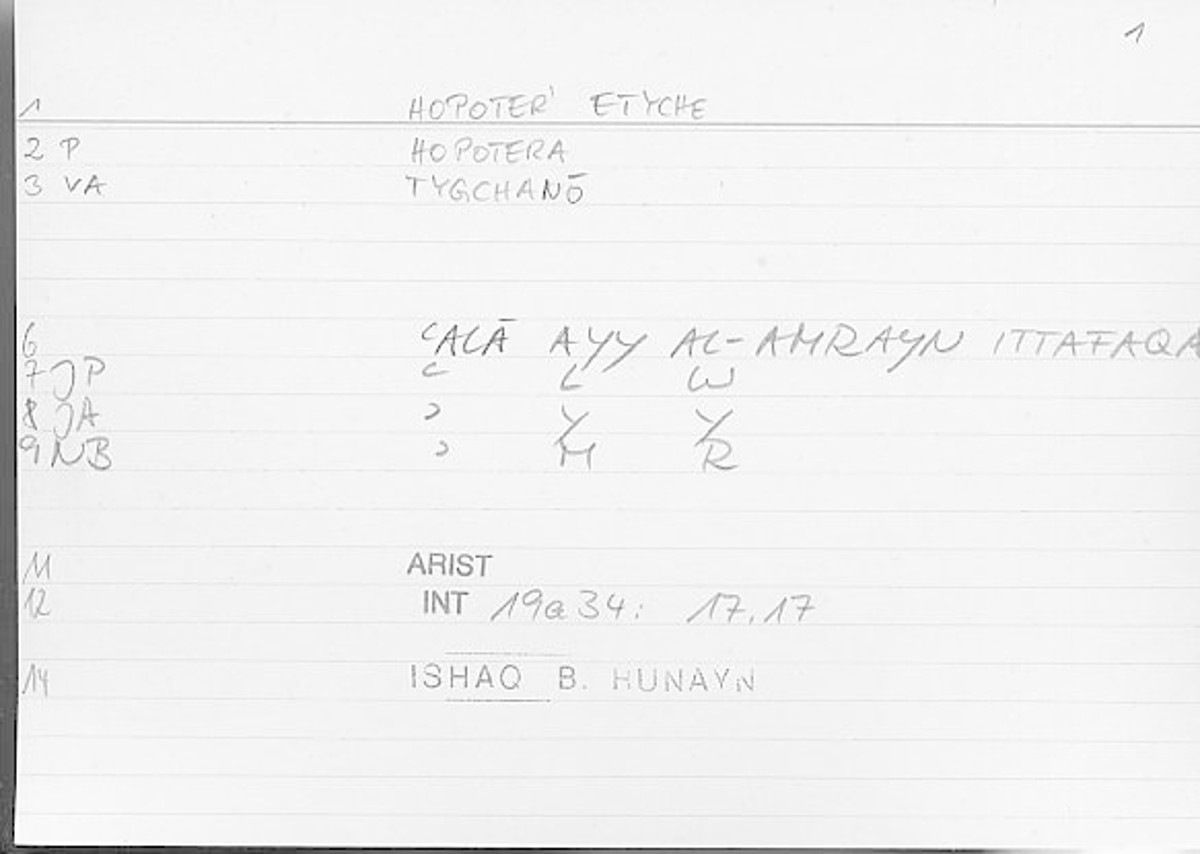 1
1 HOPOTER' ETYCHE
2 P HOPOTERA
3 VA TYGCHANŌ
6 ʿALĀ AYY AL-AMRAYN ITTAFAQA
7 JP ʿ L W
8 JA ʾ Y Y
9 NB ʾ M R
11 ARIST
12 INT 19a34: 17,17
14 ISHAQ B. HUNAYN